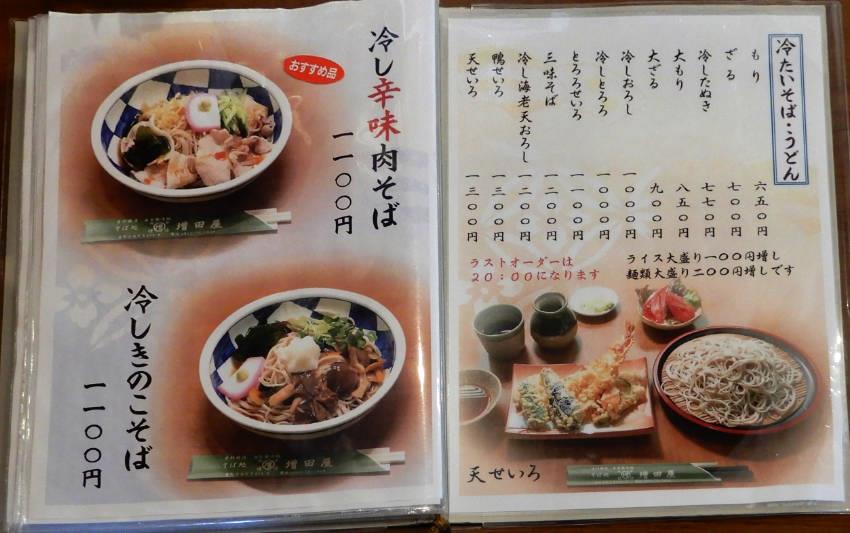 冷し辛味肉そば
おすすめ品
一一〇〇円
そば処 増田屋
冷しきのこそば
一一〇〇円
そば処 増田屋
冷たいそば・うどん
もり 六五〇円
ざる 七〇〇円
冷したぬき 七七〇円
大もり 八五〇円
大ざる 九〇〇円
冷しおろし 一〇〇〇円
冷しとろろ 一〇〇〇円
とろろせいろ 一一〇〇円
三味そば 一二〇〇円
冷し海老天おろし 一二〇〇円
鴨せいろ 一三〇〇円
天せいろ 一三〇〇円
ライス大盛り一〇〇円増し
麺類大盛り二〇〇円増しです
ラストオーダーは
20：00になります
天せいろ
そば処 増田屋